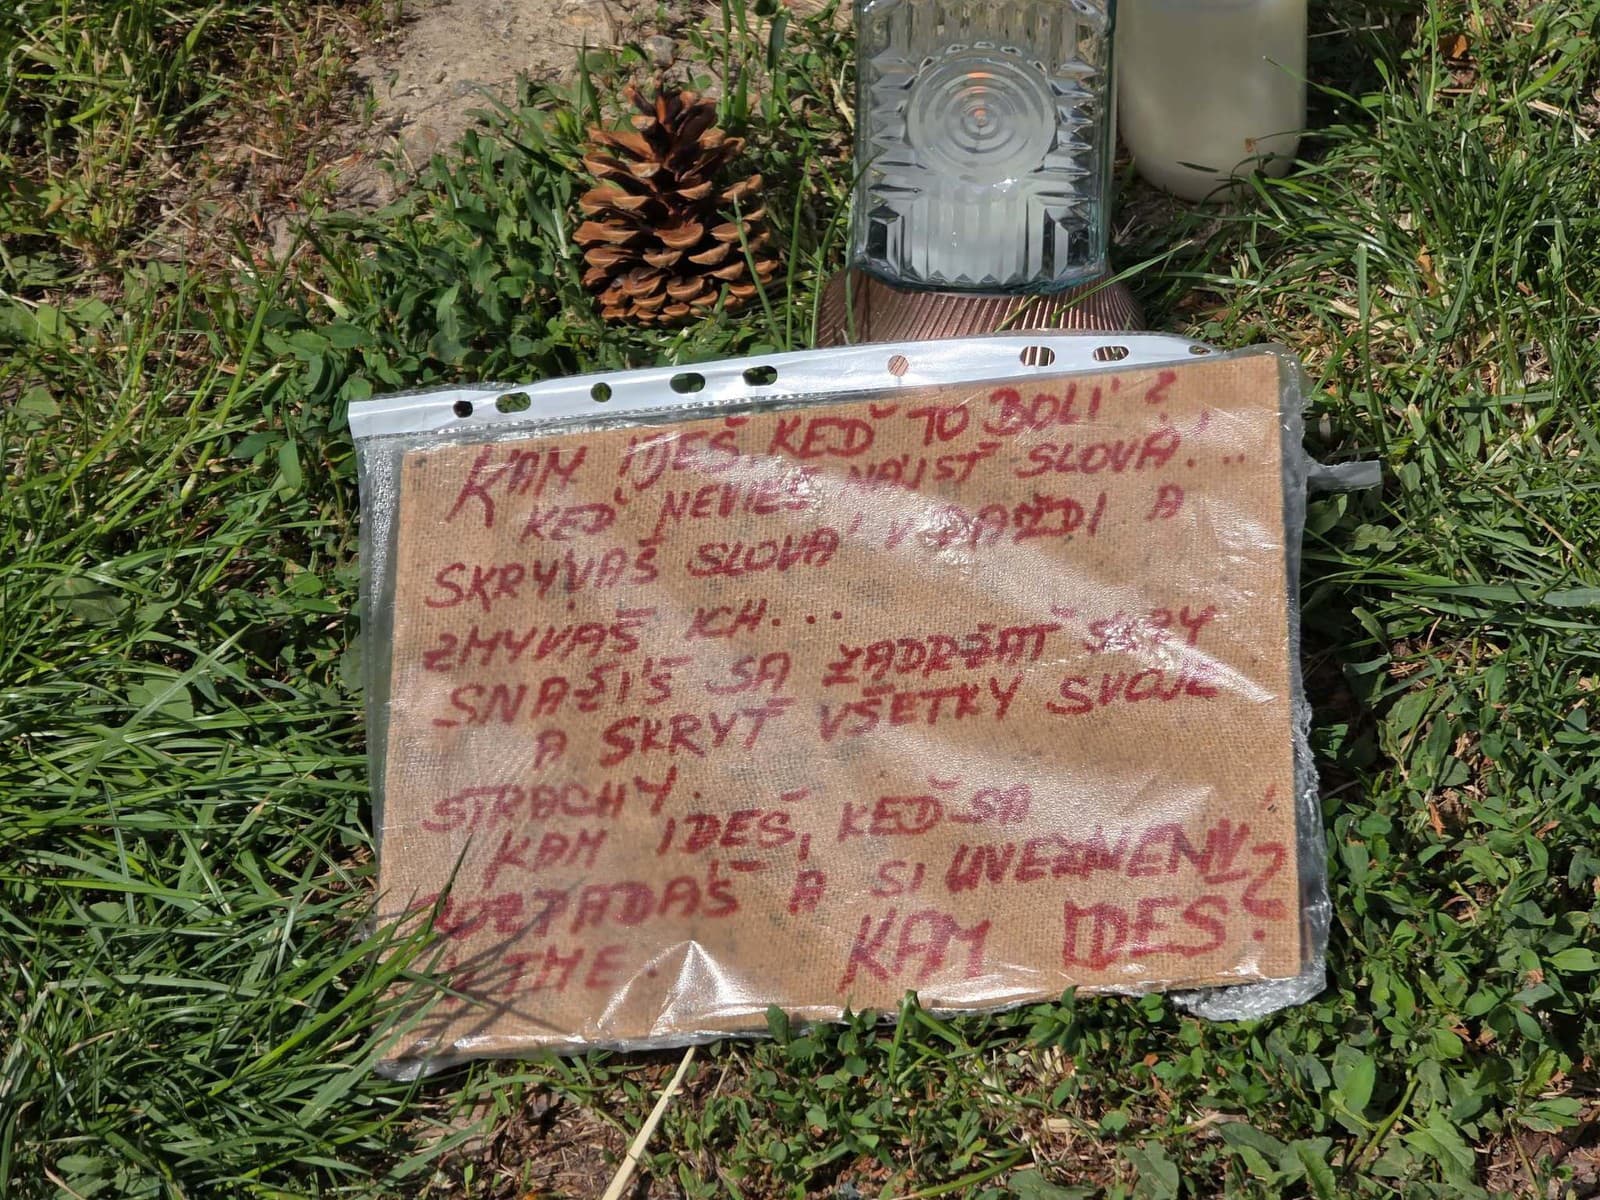 KAM IDEŠ, KEĎ TO BOLÍ?
KEĎ NEVIEŠ NÁJSŤ SLOVÁ...
SKRÝVAŠ SLOVÁ V DAŽDI A
ZMÝVAŠ ICH...
SNAŽÍŠ SA ZADRŽAŤ SLZY
A SKRYŤ VŠETKY SVOJE
STRACHY.
KAM IDEŠ, KEĎ SA
ROZPADÁŠ A SI UVEZNENÝ
V TME. KAM IDEŠ?